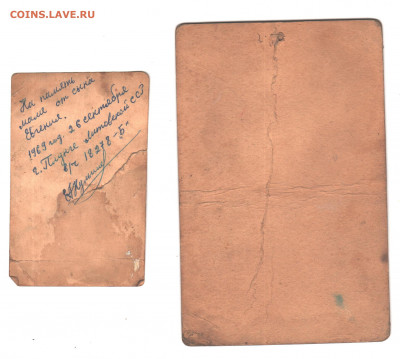 COINS.LAVE.RU
На память
маме от сына
Евгения.
1969 год. 26 сентября
г. Плунге Литовской ССР
в/ч 18278 "Б"